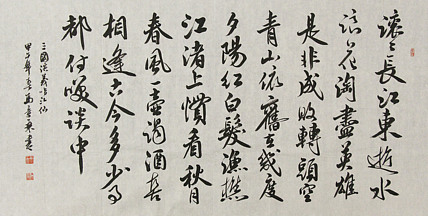 滚滚长江东逝水
浪花淘盡英雄
是非成敗轉頭空
青山依舊在幾度
夕陽紅白髮漁樵
江渚上慣看秋月
春風一壺濁酒喜
相逢古今多少事
都付笑談中
三國演義臨江仙